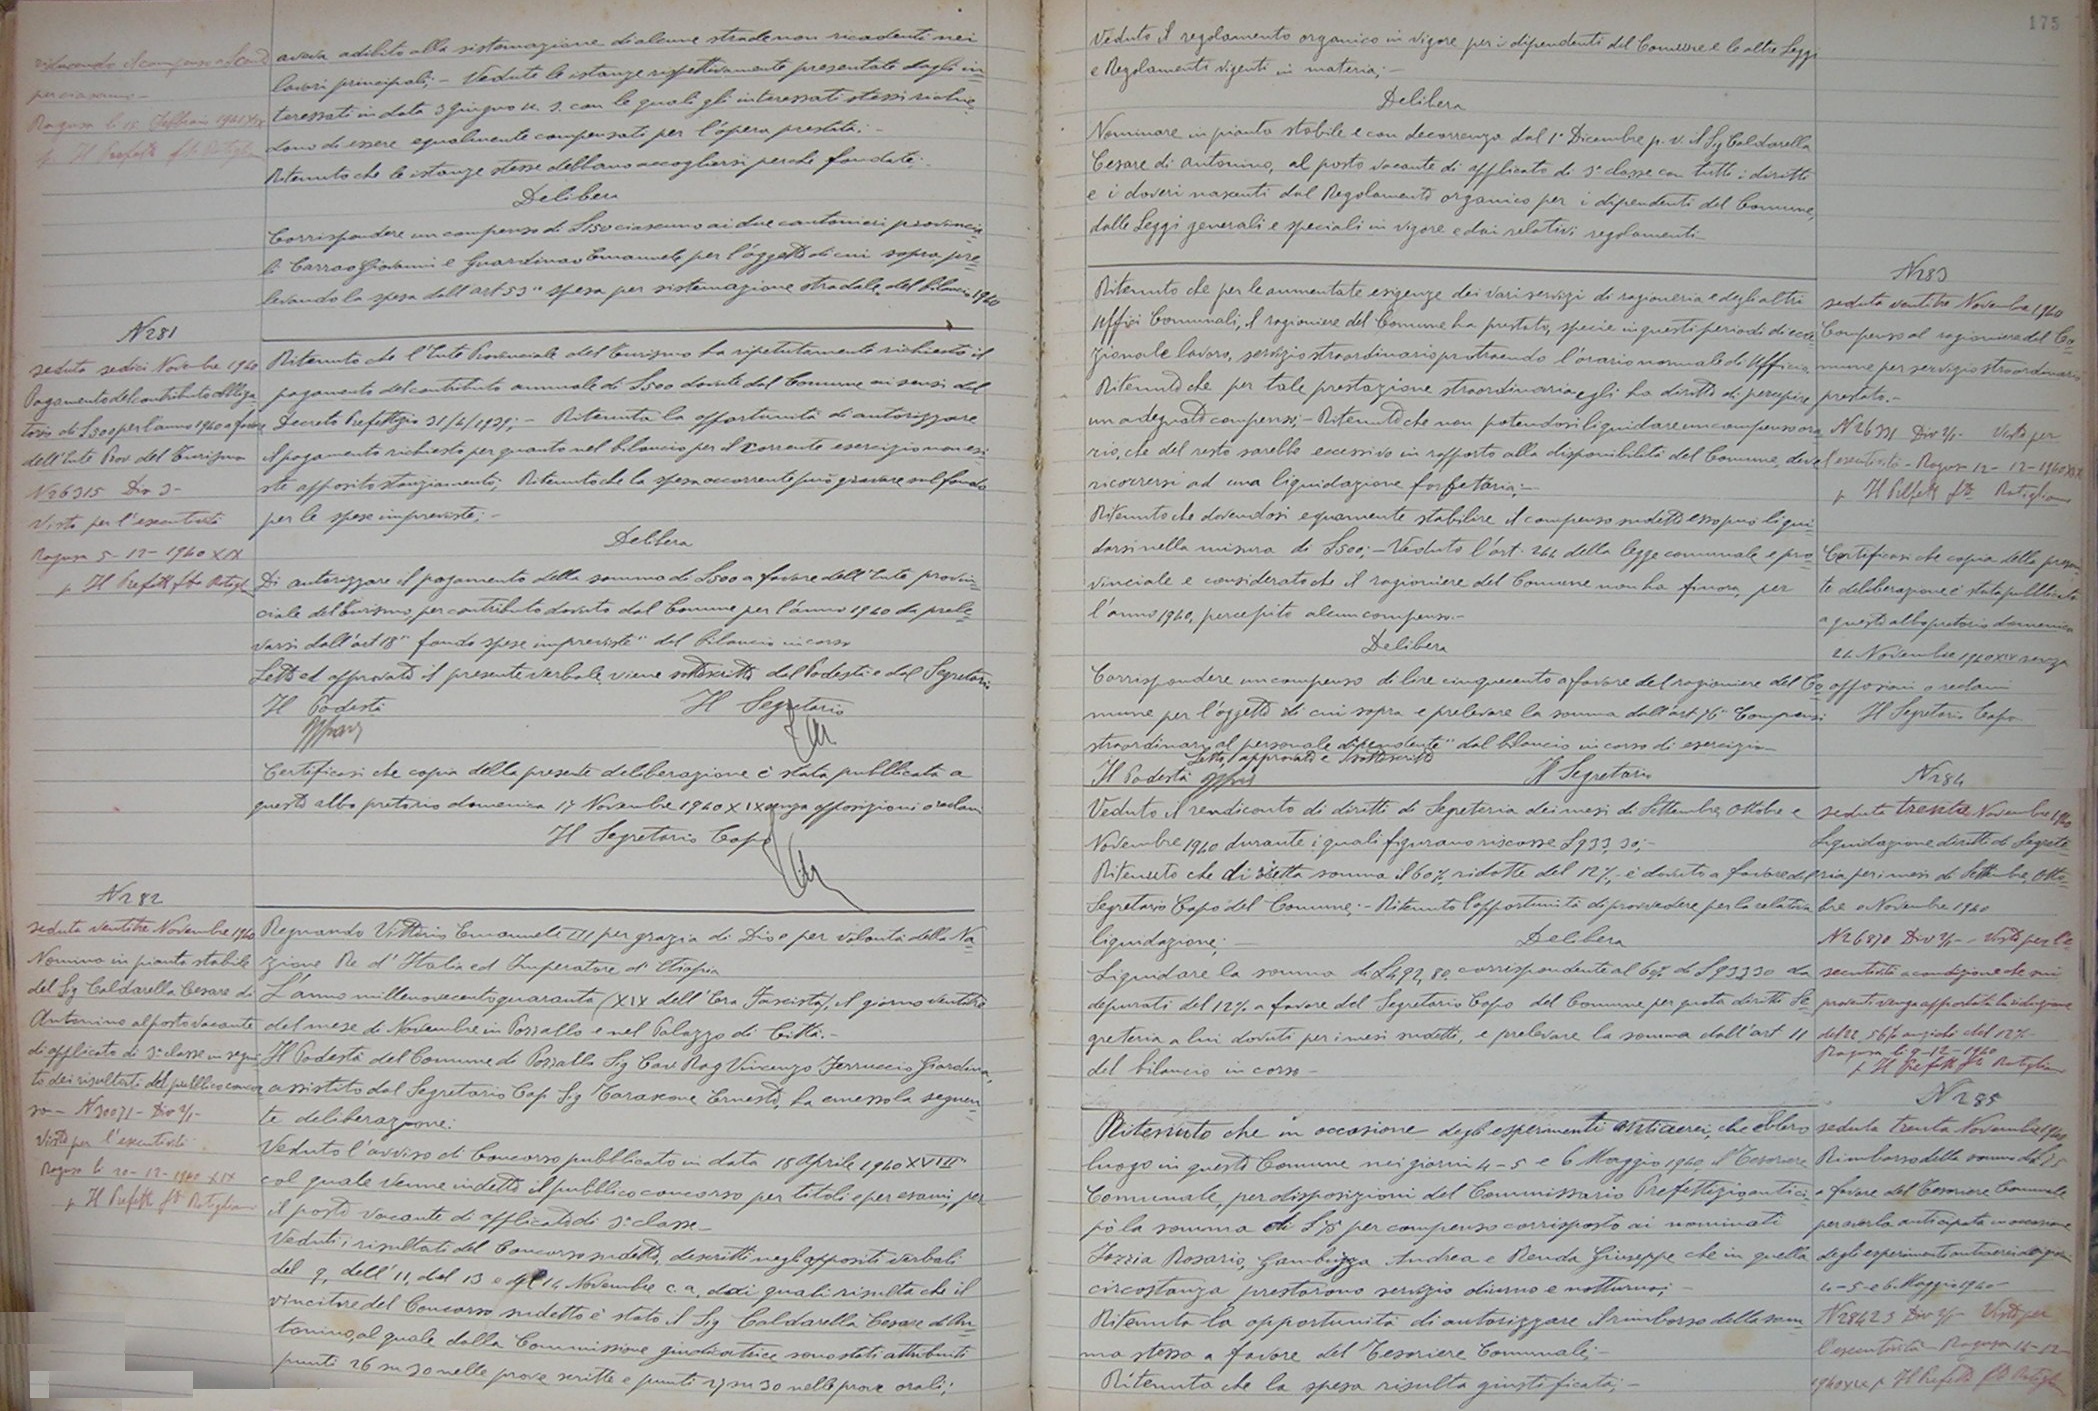 riducendo il compenso a L.
per ciascuno.-
Ragusa li 15 Febbraio 1941 XIX
p. Il Prefetto
aveva adibito alla sistemazione di alcune strade non ricadenti nei
lavori principali; - Vedute le istanze rispettivamente presentate dagli in=
teressati in data 3 giugno u. s. con le quali gli interessati stessi richie=
dono di essere egualmente compensati per l'opera prestata; -
Ritenuto che le istanze stesse debbano accogliersi perché fondate;
Delibera
Corrispondere un compenso di L 150 ciascuno ai due cantonieri provincia=
li Carrao Giovanni e Guardinao Emanuele per l'oggetto di cui sopra, pre=
levando la spesa dall'art 53 "spesa per sistemazione stradale" del bilancio 1940
N 281
seduta sedici Novembre 1940
Pagamento del contributo obbliga=
torio di L 500 per l'anno 1940 a favore
dell'Ente Prov del Turismo
N 26315 Div 3-
Visto per l'esecutività
Ragusa 5-12-1940 XIX
p Il Prefetto
Ritenuto che l'Ente Provinciale del Turismo ha ripetutamente richiesto il
pagamento del contributo annuale di L 500 dovute dal Comune ai sensi del
Decreto Prefettizio 31/4/1939; - Ritenuta la opportunità di autorizzare
il pagamento richiesto per quanto nel bilancio per il corrente esercizio non esi=
ste apposito stanziamento; Ritenuto che la spesa occorrente può gravare sul fondo
per le spese impreviste; -
Delibera
Di autorizzare il pagamento della somma di L 500 a favore dell'Ente provin=
ciale del Turismo, per contributo dovuto dal Comune per l'anno 1940 da prele=
varsi dall'art 18 "fondo spese impreviste" del bilancio in corso
Letto ed approvato il presente verbale viene sottoscritto dal Podestà e dal Segretario
Il Podestà Il Segretario
Certificasi che copia della presente deliberazione è stata pubblicata a
questo albo pretorio domenica 17 Novembre 1940 XIX senza opposizioni o reclami
Il Segretario Capo
N 282
seduta ventitre Novembre 1940
Nomina in pianta stabile
del Sig Caldarella Cesare di
Antonino al posto vacante
di applicato di 3ª classe in segui=
to dei risultati del pubblico concor
so - N 30071 - Div 2/1-
Visto per l'esecutività
Ragusa li 20-12-1940 XIX
p Il Prefetto
Regnando Vittorio Emanuele III per grazia di Dio e per volontà della Na=
zione Re d'Italia ed Imperatore d'Etiopia
L'anno millenovecentoquaranta (XIX dell'Era Fascista), il giorno ventitre
del mese di Novembre in Pozzallo e nel Palazzo di Città.-
Il Podestà del Comune di Pozzallo Sig Cav Rag Vincenzo Ferruccio Giardina,
assistito dal Segretario Capo Sig Tarascone Ernesto, ha emesso la seguen=
te deliberazione:
Veduto l'avviso di Concorso pubblicato in data 18 Aprile 1940 XVIII
col quale venne indetto il pubblico concorso per titoli e per esami, per
il posto vacante di applicato di 3ª classe-
Veduti i risultati del Concorso sudetto, descritti negli appositi verbali
del 9, dell'11, del 13 e del 14 Novembre c. a. dai quali risulta che il
vincitore del Concorso sudetto è stato il Sig Caldarella Cesare di An=
tonino, al quale dalla Commissione giudicatrice sono stati attribuiti
punti 26 su 30 nelle prove scritte e punti 27 su 30 nelle prove orali;
175
Veduto il regolamento organico in vigore per i dipendenti del Comune e le altre Leggi
e Regolamenti vigenti in materia; -
Delibera
Nominare in pianta stabile e con decorrenza dal 1° Dicembre p. v. il Sig Caldarella
Cesare di Antonino, al posto vacante di applicato di 3ª classe con tutti i diritti
e i doveri nascenti dal Regolamento organico per i dipendenti del Comune,
dalle Leggi generali e speciali in vigore e dai relativi regolamenti-
Ritenuto che per le aumentate esigenze dei vari servizi di ragioneria e degli altri
uffici Comunali, il ragioniere del Comune ha prestato, specie in questi periodi di ecce=
zionale lavoro, servizio straordinario protraendo l'orario normale di Ufficio
Ritenuto che per tale prestazione straordinaria egli ha diritto di percepire
un adeguato compenso; - Ritenuto che non potendosi liquidare un compenso ora
rio, che del resto sarebbe eccessivo in rapporto alla disponibilità del Comune, deve
ricorrersi ad una liquidazione forfetaria; -
Ritenuto che dovendosi equamente stabilire il compenso sudetto esso può liqui=
darsi nella misura di L 500; - Veduto l'art. 244 della legge comunale e pro=
vinciale e considerato che il ragioniere del Comune non ha finora, per
l'anno 1940, percepito alcun compenso.-
Delibera
Corrispondere un compenso di lire cinquecento a favore del ragioniere del Co=
mune per l'oggetto di cui sopra e prelevare la somma dall'art 76 "Compensi
straordinari al personale dipendente" dal bilancio in corso di esercizio-
Letto, approvato e sottoscritto
Il Podestà Il Segretario
N 283
seduta ventitre Novembre 1940
Compenso al ragioniere del Co=
mune per servizio straordinario
prestato.-
N 26331 Div 2/1- Visto per
l'esecutività - Ragusa 12-12-1940 XIX
p Il Prefetto
Certificasi che copia della presen=
te deliberazione è stata pubblicata
a questo albo pretorio domenica
24 Novembre 1940 XIX senza
opposizioni o reclami
Il Segretario Capo
Veduto il rendiconto di diritti di Segreteria dei mesi di Settembre, Ottobre e
Novembre 1940 durante i quali figurano riscosse L 933,30; -
Ritenuto che di detta somma il 60% ridotte del 12%, è dovuto a favore del
Segretario Capo del Comune; - Ritenuto l'opportunità di provvedere per la relativa
liquidazione; - Delibera
Liquidare la somma di L 492,80 corrispondente al 60% di L 933.30 da
depurati del 12% a favore del Segretario Capo del Comune per quota diritti Se=
greteria a lui dovuti per i mesi sudetti, e prelevare la somma dall'art 11
del bilancio in corso-
N 284
seduta trenta Novembre 1940
Liquidazione diritti di Segrete=
ria per i mesi di Settembre, Otto=
bre e Novembre 1940
N 26870 Div 2/1- Visto per l'e=
secutività a condizione che sui
proventi venga apportata la riduzione
del 22,56% anziché del 12%
Ragusa li 9-12-1940
p Il Prefetto
Ritenuto che in occasione degli esperimenti antiaerei, che ebbero
luogo in questo Comune nei giorni 4-5 e 6 Maggio 1940, il Tesoriere
Comunale, per disposizioni del Commissario Prefettizio antici=
pò la somma di L 75 per compenso corrisposto ai nominati
Iozzia Rosario, Gambuzza Andrea e Renda Giuseppe che in quella
circostanza prestarono servizio diurno e notturno; -
Ritenuta la opportunità di autorizzare il rimborso della som=
ma stessa a favore del Tesoriere Comunale; -
Ritenuto che la spesa risulta giustificata; -
N 285
seduta trenta Novembre 1940
Rimborso della somma di L 75
a favore del Tesoriere Comunale
per averla anticipata in occasione
degli esperimenti antiaerei dei giorni
4-5 e 6 Maggio 1940-
N 28423 Div 2/1- Visto per
l'esecutività - Ragusa 14-12-
1940 XIX p Il Prefetto